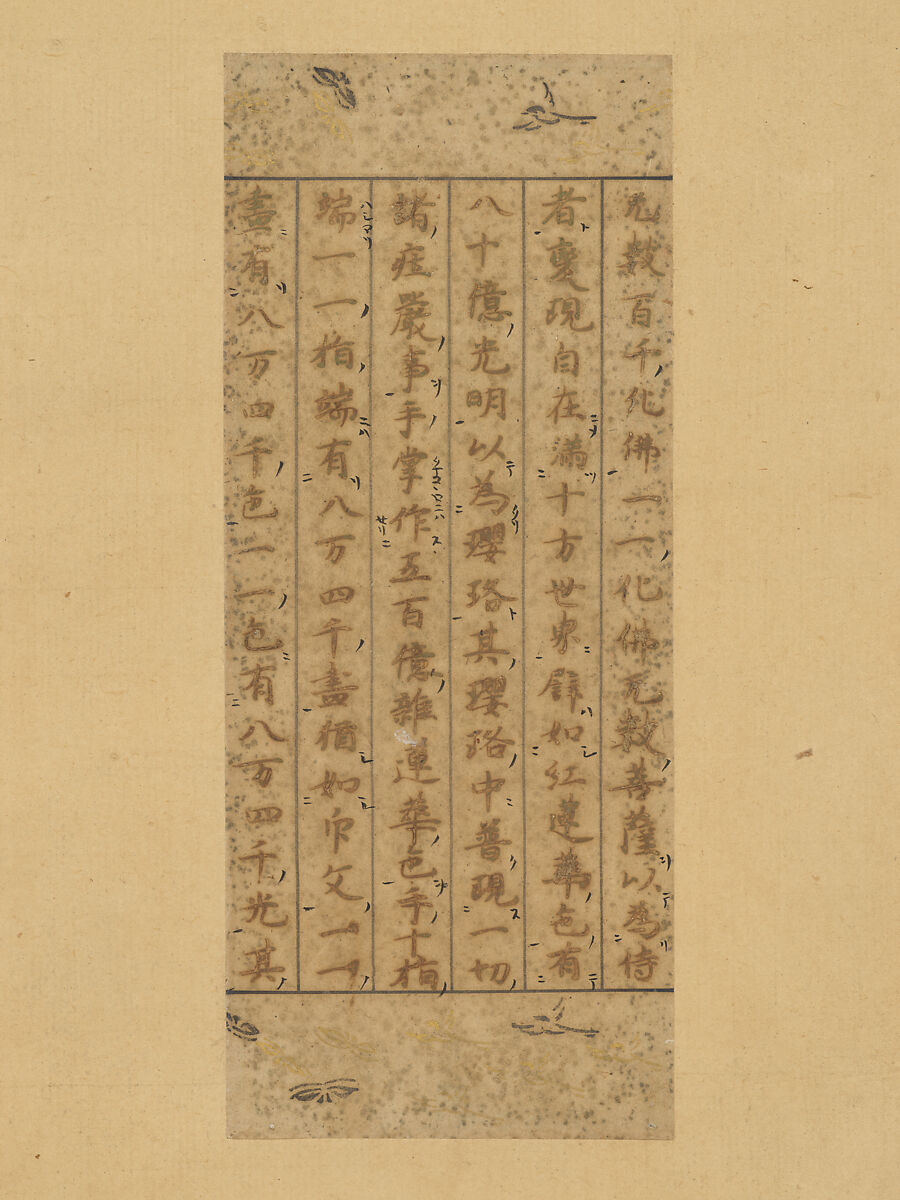 无數百千化佛一一化佛无數菩薩以為侍
者變現自在滿十方世界譬如紅蓮華色有
八十億光明以為瓔珞其瓔珞中普現一切
諸莊嚴事手掌作五百億雜蓮華色手十指
端一一指端有八万四千畫猶如印文一一
畫有八万四千色一一色有八万四千光其